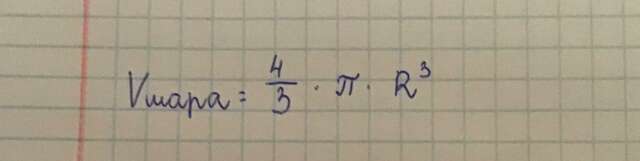 Vшара = 4/3 · π · R³